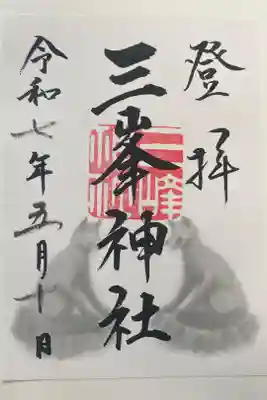 登拝
三峯神社
令和七年五月十日